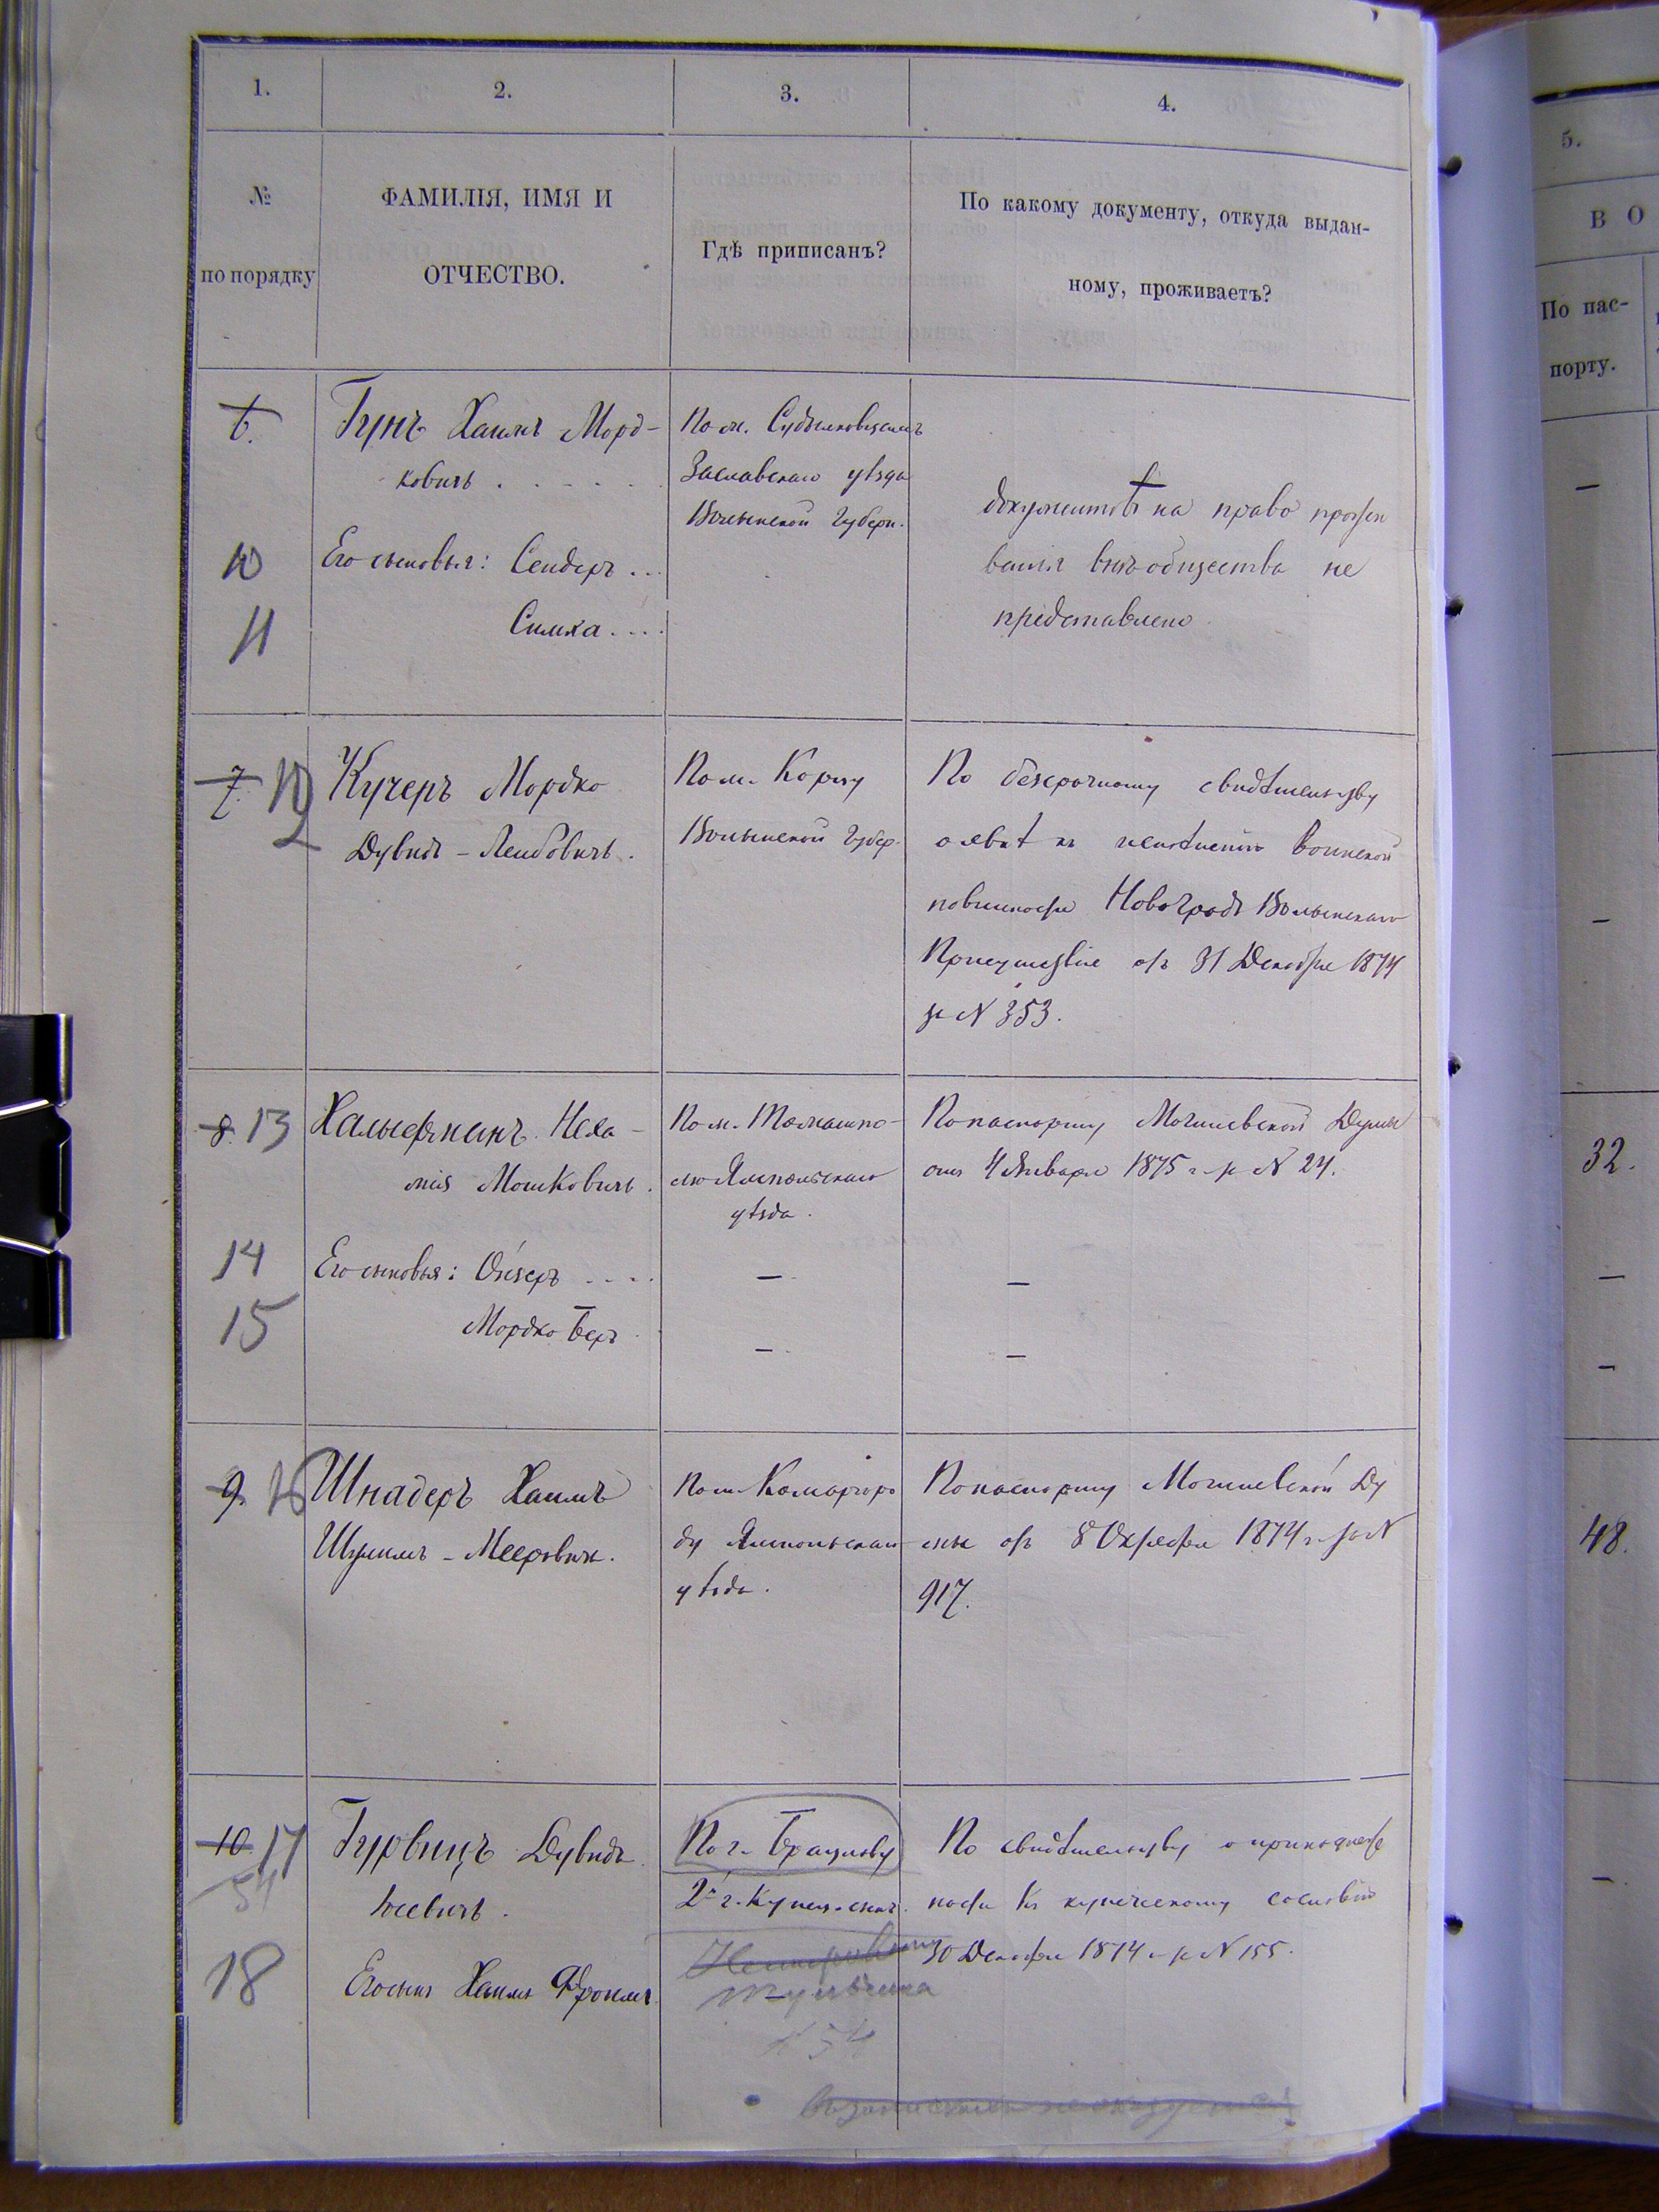 1.
2.
3.
4.
№
по порядку
ФАМИЛІЯ, ИМЯ И
ОТЧЕСТВО.
Гдѣ приписанъ?
По какому документу, откуда выдан-
ному, проживаетъ?
6.
Гунъ Хаимъ Морд-
ковичъ . . . . . .
По м. Судилковскимъ
Заславскаго уѣзда
Волынской Губерн.
документовъ на право прожи
ванія внѣ общества не
представлено
10
Его сыновья: Сендеръ ...
11
Симха ....
7. 12
Кучеръ Мордко
Дувидъ-Лейбовичъ.
По м. Корцу
Волынской Губер.
По безсрочному свидѣтельству
о явкѣ къ исполненію воинской
повинности Новоградъ Волынскаго
Присутствія отъ 31 Декабря 1874
за N 353.
8. 13
Хальфманъ Неха-
мія Мошковичъ.
По м. Томашпо-
лю Ямпольскаго
уѣзда.
По паспорту Могилевской Думы
отъ 4 Января 1875 г. за N 24.
14
Его сыновья: Ойзеръ ....
—
—
15
Мордко Беръ.
—
—
9. 16
Шнадеръ Хаимъ
Шулимъ-Мееровичъ.
По м. Комаргоро
ду Ямпольскаго
уѣзда.
По паспорту Могилевской Ду
мы отъ 8 Октября 1874 г. за N
917.
10 17
54
Гурвицъ Дувидъ
Іосевичъ.
По г. Брацлаву
2й г. Купец. сынъ.
По свидѣтельству о принадлеж
ности къ купеческому сословію
30 Декабря 1874 г. за N 155.
18
Его сынъ Хаимъ Фроимъ.
Тульчина
54
5.
В О
По пас-
порту.
—
—
32.
—
—
48.
—